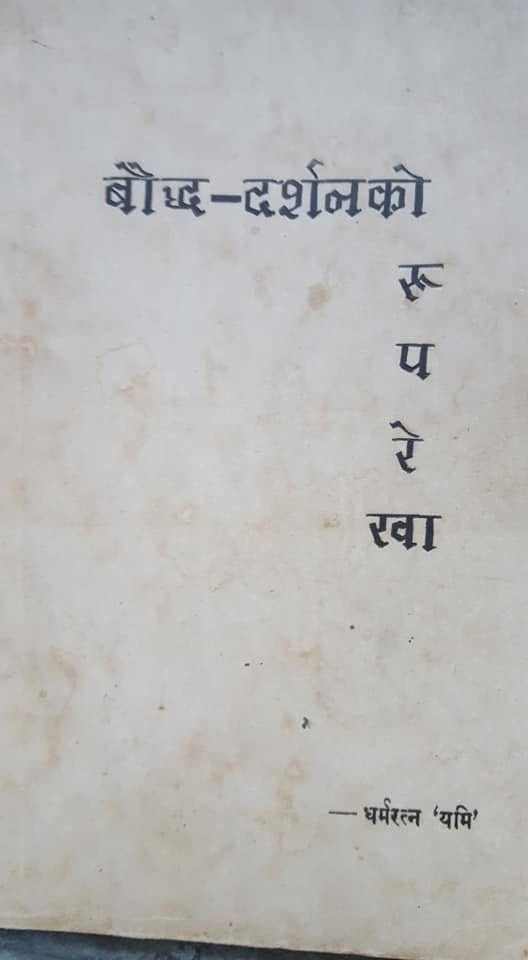 बौद्ध-दर्शनको
रू
प
रे
खा
—धर्मरत्न 'यमि'